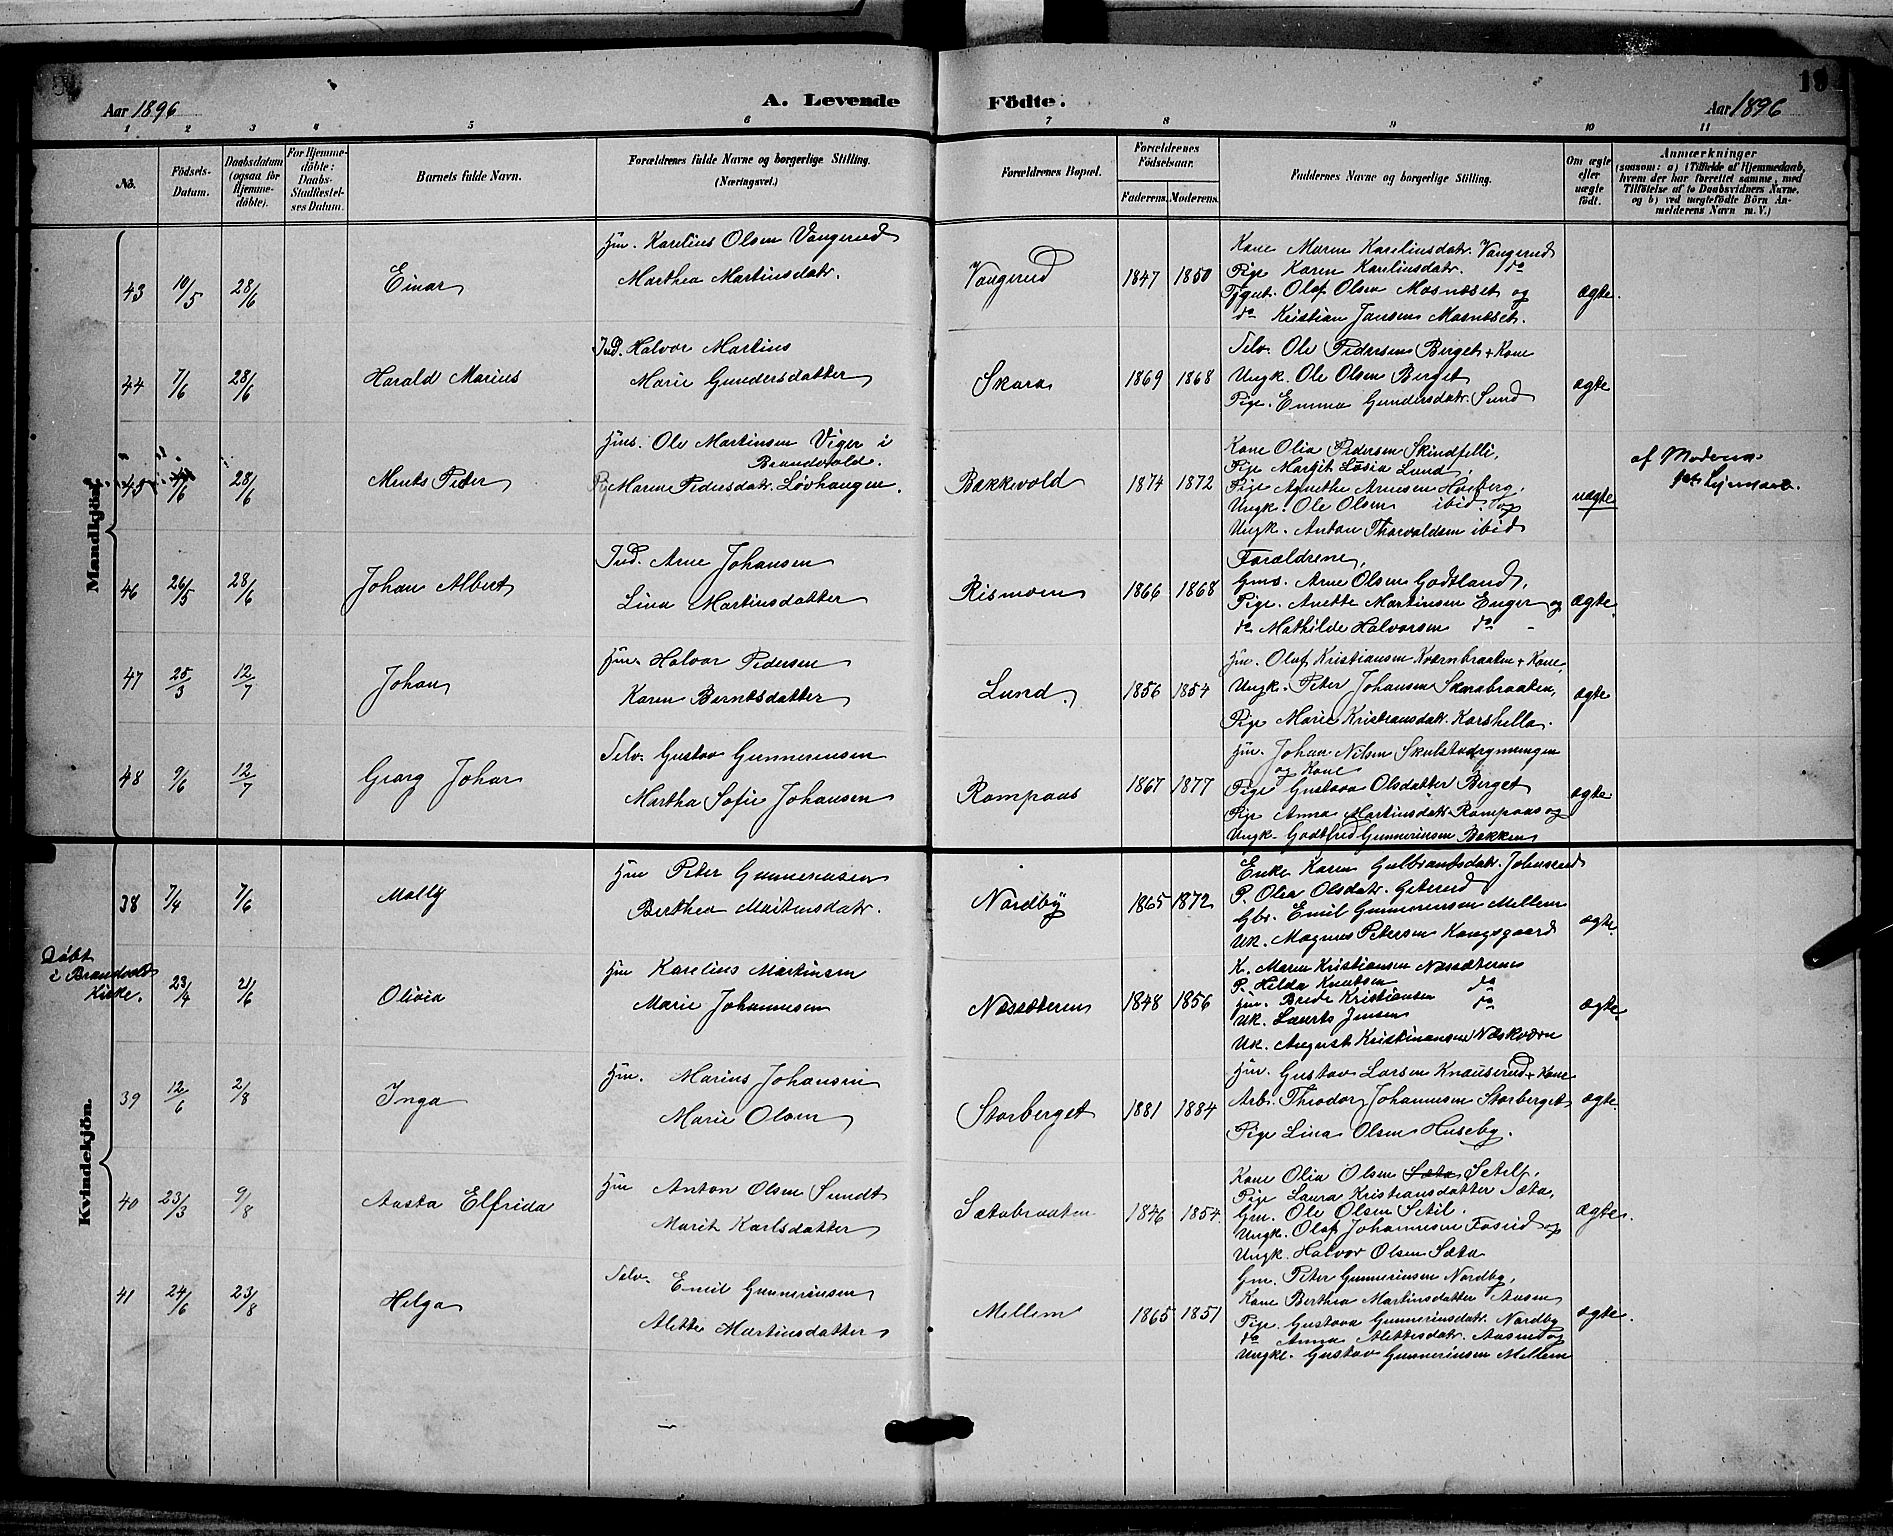 19
Aar 1896
A. Levende Födte.
Aar 1896
1 2 3 4 5 6 7 8 9 10 11
No.
Födsels-Datum.
Daabsdatum (ogsaa for Hjemme-döbte).
For Hjemme-döbte: Daabs-Stadfestel-ses Datum.
Barnets fulde Navn.
Forældrenes fulde Navne og borgerlige Stilling. (Næringsvei.)
Forældrenes Bopæl.
Forældrenes Födselsaar.
Faderens. Moderens.
Faddernes Navne og borgerlige Stilling.
Om ægte eller uægte födt.
Anmærkninger
(saasom: a) i Tilfælde af Hjemmedaab, hvem der har forrettet samme, med Tilföielse af to Daabsvidners Navne. og b) ved uægtefödte Börn Anmelderens Navn m. V.)
Mandkjön.
43 10/5 28/6 Einar
Hm. Karelius Olsen Vangerud
Marthea Martinsdatr.
Vangerud 1847 1850
Kone Maren Kareliusdatr. Vangerud
Pige Karen Kareliusdatr. do
Tjgut. Olaf Olsen Mosnæset og
do Kristian Jansen Mosnæset.
ægte.
44 7/6 28/6 Harald Marius
Ind. Halvor Martins
Marie Gundersdatter
Skara 1869 1868
Selv. Ole Pedersen Berget + Kone
Ungk. Ole Olsen Berget
Pige. Emma Gundersdatr. Sund
ægte
45 /6 28/6 Ments Peter
Hms. Ole Martinsen Viger i
Brandvold.
Pig Maren Pedersdatr. Løvhaugen.
Bakkevold 1874 1872
Kone Olia Pedersen Skindfelli,
Pige Margit Losia Lund,
Pige Agnethe Arnesen Høiberg,
Ungk. Ole Olsen ibid. og
Ungk. Anton Thorvaldsen ibid
uægte
af Moderen
46 26/5 28/6 Johan Albert
Ind. Arne Johansen
Lina Martinsdatter
Rismoen 1866 1868
Forældrene,
Gms. Arne Olsen Godtland,
Pige. Anette Martinsen Enger og
do Mathilde Halvorsen do -
ægte.
47 25/3 12/7 Johan
Hm. Halvor Pedersen
Karen Berntsdatter
Lund. 1856 1854
Hm. Olaf Kristiansen Kværnbraaten + Kone
Ungk. Peter Johansen Skarabraaten,
Pige Marie Kristiansdatr. Korshella.
ægte
48 9/6 12/7 Georg Johan
Selv. Gustav Gunneriusen
Martha Sofie Johansen
Rompaas 1867 1877
Hm. Johan Nilsen Skulstadrymningen
og Kone
Pige Gustava Olsdatter Berget
Pige Anna Martinsdatr. Rompaas og
Ungk. Godtfred Gunneriusen Bakken
ægte.
Kvindekjön.
38 7/4 7/6 Molly
Hm Peter Gunneriusen
Berthea Martinsdatr.
Nordby 1865 1872
Enke Karen Gulbrandsdatr. Johnsrud
P. Olea Olsdatr. Geterud
Gbr. Emil Gunneriusen Mellem
Uk. Magnus Petersen Kongsgaard
ægte.
Døbt
i Brandvold
Kirke.
23/4 21/6 Olivia
Hm Karelius Martinsen
Marie Johannesen
Næssæteren 1848 1856
K. Maren Kristiansen Næssæteren
P. Hilda Knutsen do
Hm. Brede Kristiansen do
Uk. Laurts Jensen
Uk. August Kristiansen Næskværn
ægte.
39 12/6 2/8 Inga
Hm. Marius Johansen
Marie Olsen
Storberget 1881 1884
Hm. Gustav Larsen Knauserud + Kone
Arb. Theodor Johannesen Storberget
Pige Lina Olsen Huseby.
ægte.
40 23/3 9/8 Aasta Elfrida
Hm Anton Olsen Sundt
Marit Karlsdatter
Sætabraaten 1846 1854.
Kone Olia Olsen Sæta Setil,
Pige Laura Kristiansdatter Sæta,
Gm. Ole Olsen Setil.
Ungk. Olaf Johannesen Fosrud og
Ungk. Halvor Olsen Sæta
ægte.
41 24/6 23/8 Helga
Selv. Emil Gunneriusen
Alette Martinsdatter
Mellem 1865 1851
Gm. Peter Gunneriusen Nordby,
Kone Berthea Martinsdatter Aasen
Pige. Gustava Gunneriusdatr. Nordby
do Anna Alettesdatr. Aasen og
Ungk. Gustav Gunneriusen Mellem
ægte.